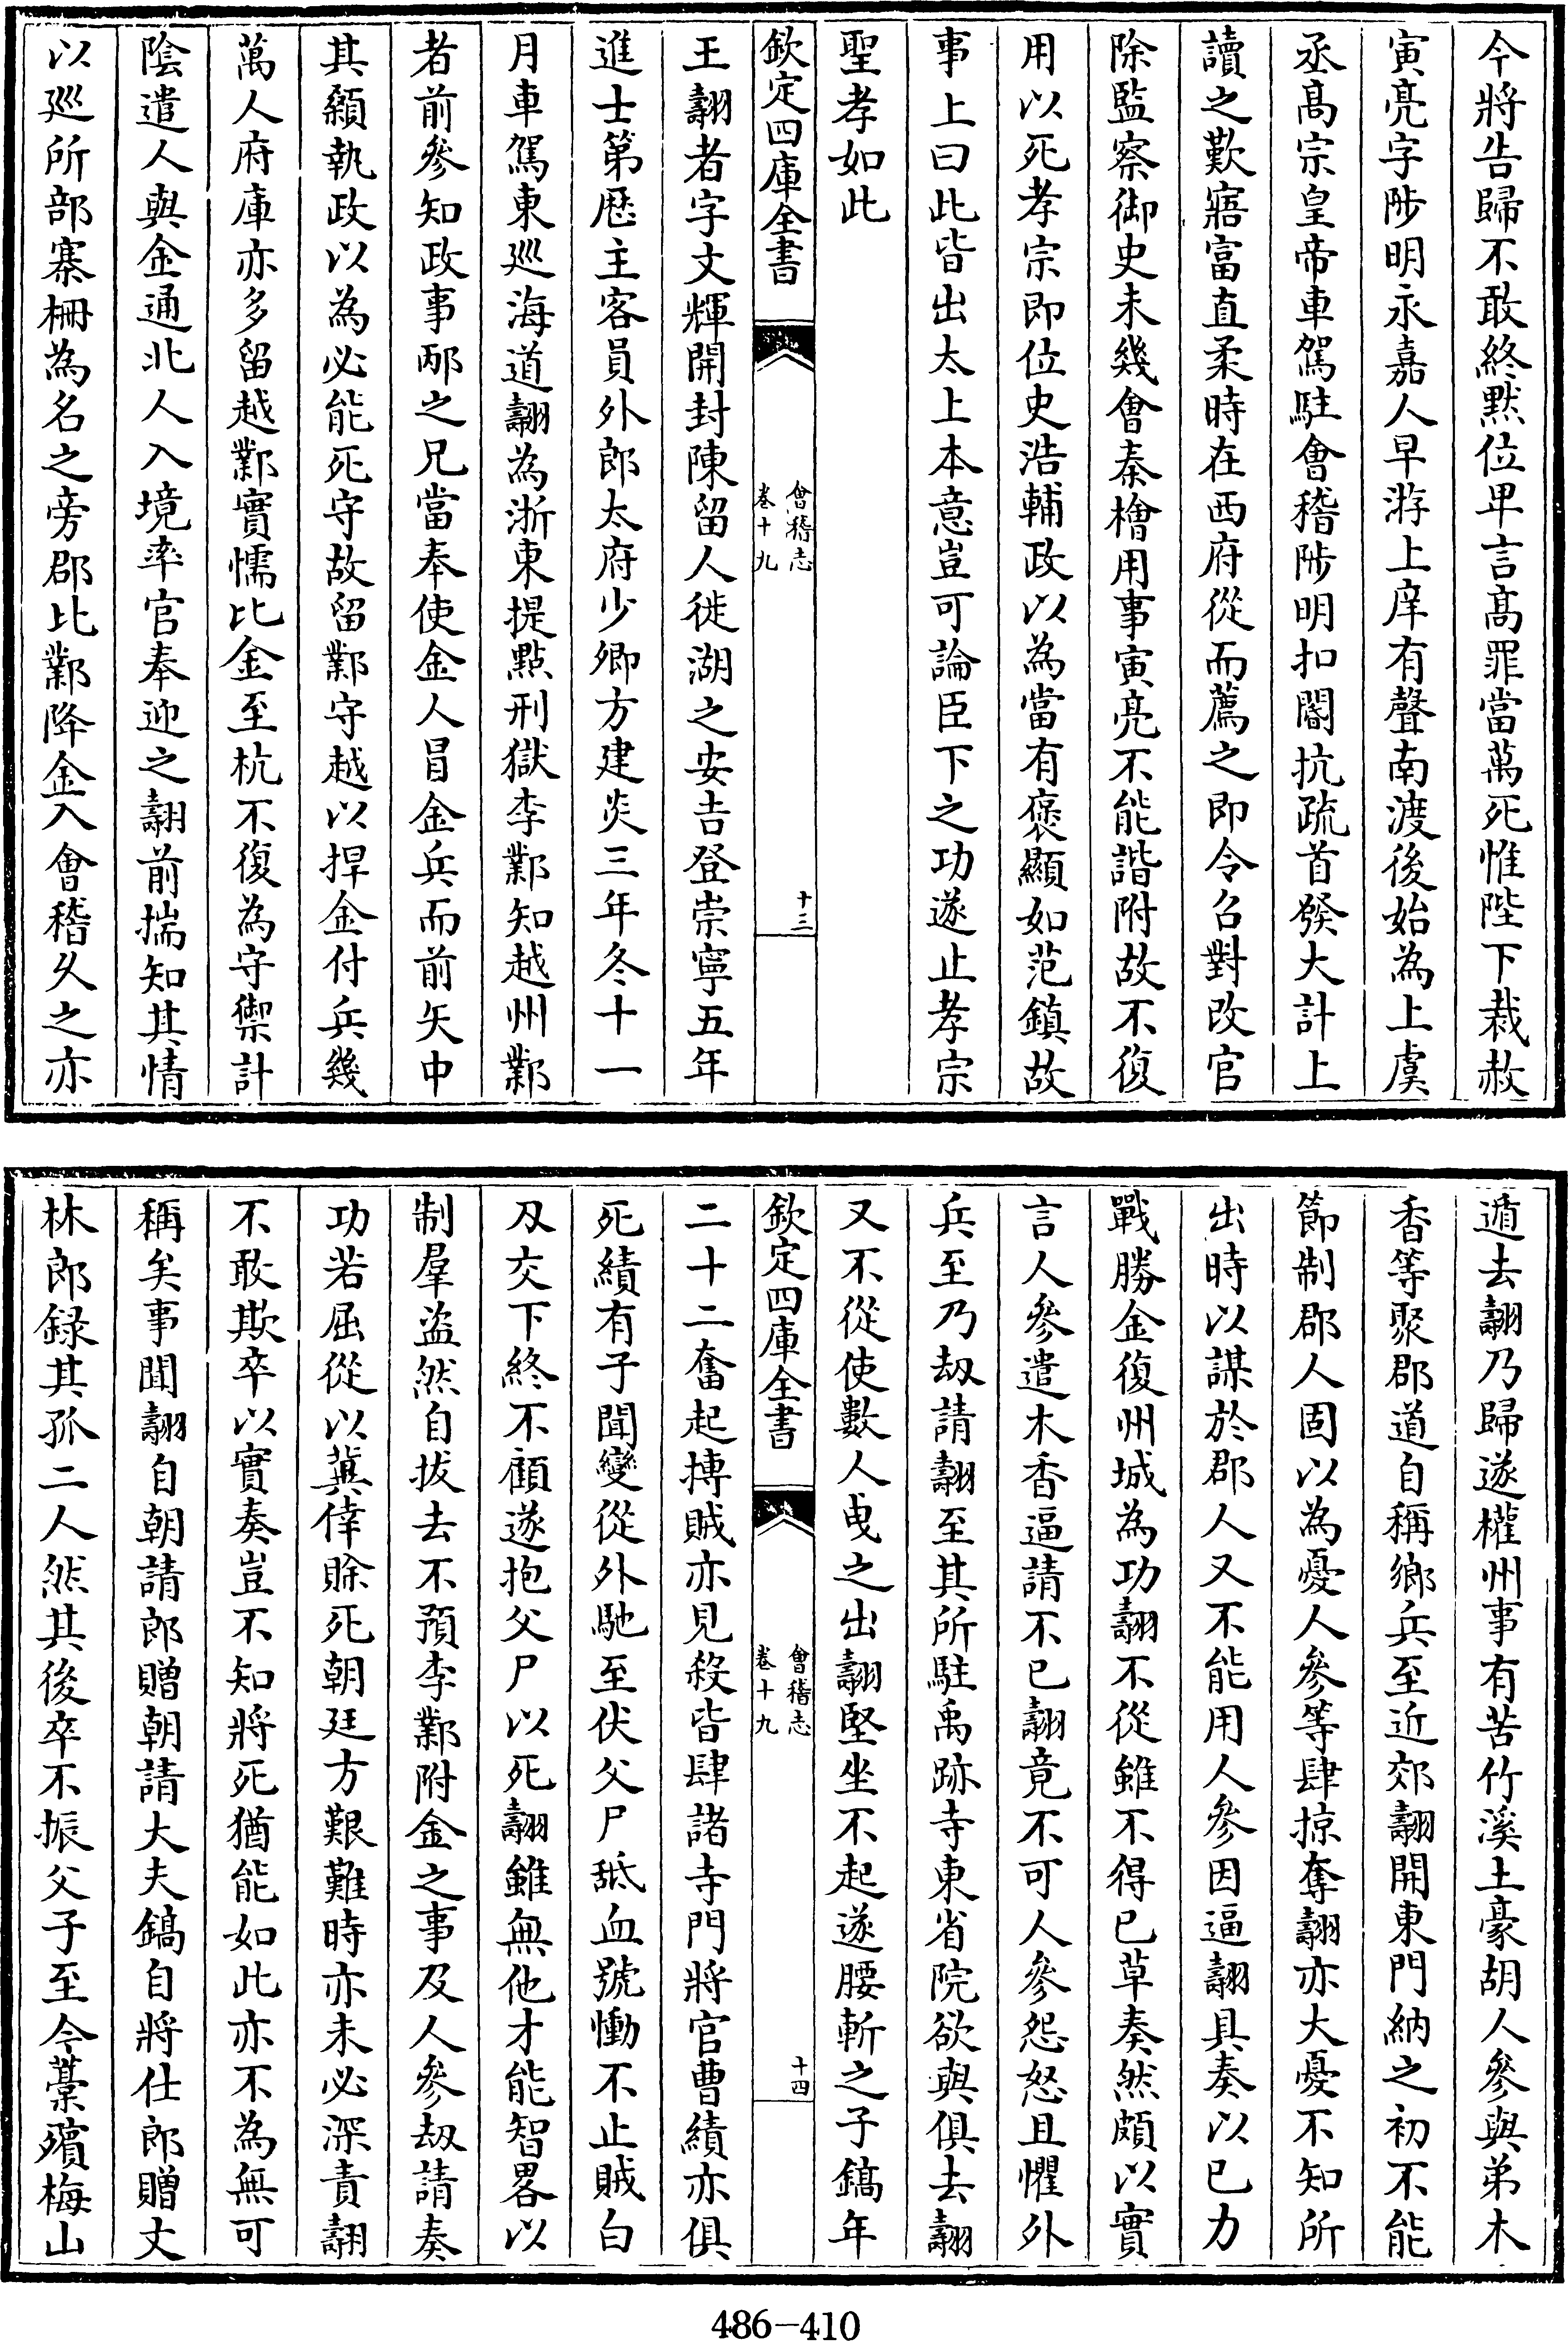 今將告歸不敢終黙位卑言髙罪當萬死惟陛下裁赦
寅亮字陟明永嘉人早游上庠有聲南渡後始為上虞
丞髙宗皇帝車駕駐會稽陟明扣閽抗疏首發大計上
讀之歎寤富直柔時在西府從而薦之即令召對改官
除監察御史未幾會秦檜用事寅亮不能諧附故不復
用以死孝宗即位史浩輔政以為當有褒顯如范鎮故
事上曰此皆出太上本意豈可論臣下之功遂止孝宗
聖孝如此
欽定四庫全書
會稽志
卷十九
十三
王翿者字文輝開封陳留人徙湖之安吉登崇寧五年
進士第歴主客員外郎太府少卿方建炎三年冬十一
月車駕東廵海道翿為浙東提點刑獄李鄴知越州鄴
者前參知政事邴之兄當奉使金人冒金兵而前矢中
其顙執政以為必能死守故留鄴守越以捍金付兵幾
萬人府庫亦多留越鄴實懦比金至杭不復為守禦計
陰遣人與金通北人入境率官奉迎之翿前揣知其情
以廵所部寨柵為名之旁郡比鄴降金入會稽久之亦
遁去翿乃歸遂權州事有苦竹溪土豪胡人參與弟木
香等聚郡道自稱鄉兵至近郊翿開東門納之初不能
節制郡人固以為憂人參等肆掠奪翿亦大憂不知所
出時以謀於郡人又不能用人參因逼翿具奏以已力
戰勝金復州城為功翿不從雖不得已草奏然頗以實
言人參遣木香逼請不已翿竟不可人參怨怒且懼外
兵至乃刼請翿至其所駐禹跡寺東省院欲與俱去翿
又不從使數人曵之出翿堅坐不起遂腰斬之子鎬年
欽定四庫全書
會稽志
卷十九
十四
二十二奮起搏賊亦見殺皆肆諸寺門將官曹績亦俱
死績有子聞變從外馳至伏父尸舐血號慟不止賊白
刄交下終不顧遂抱父尸以死翿雖無他才能智畧以
制羣盗然自拔去不預李鄴附金之事及人參刼請奏
功若屈從以冀倖賒死朝廷方艱難時亦未必深責翿
不敢欺卒以實奏豈不知將死猶能如此亦不為無可
稱矣事聞翿自朝請郎贈朝請大夫鎬自將仕郎贈文
林郎録其孤二人然其後卒不振父子至今藁殯梅山
486-410